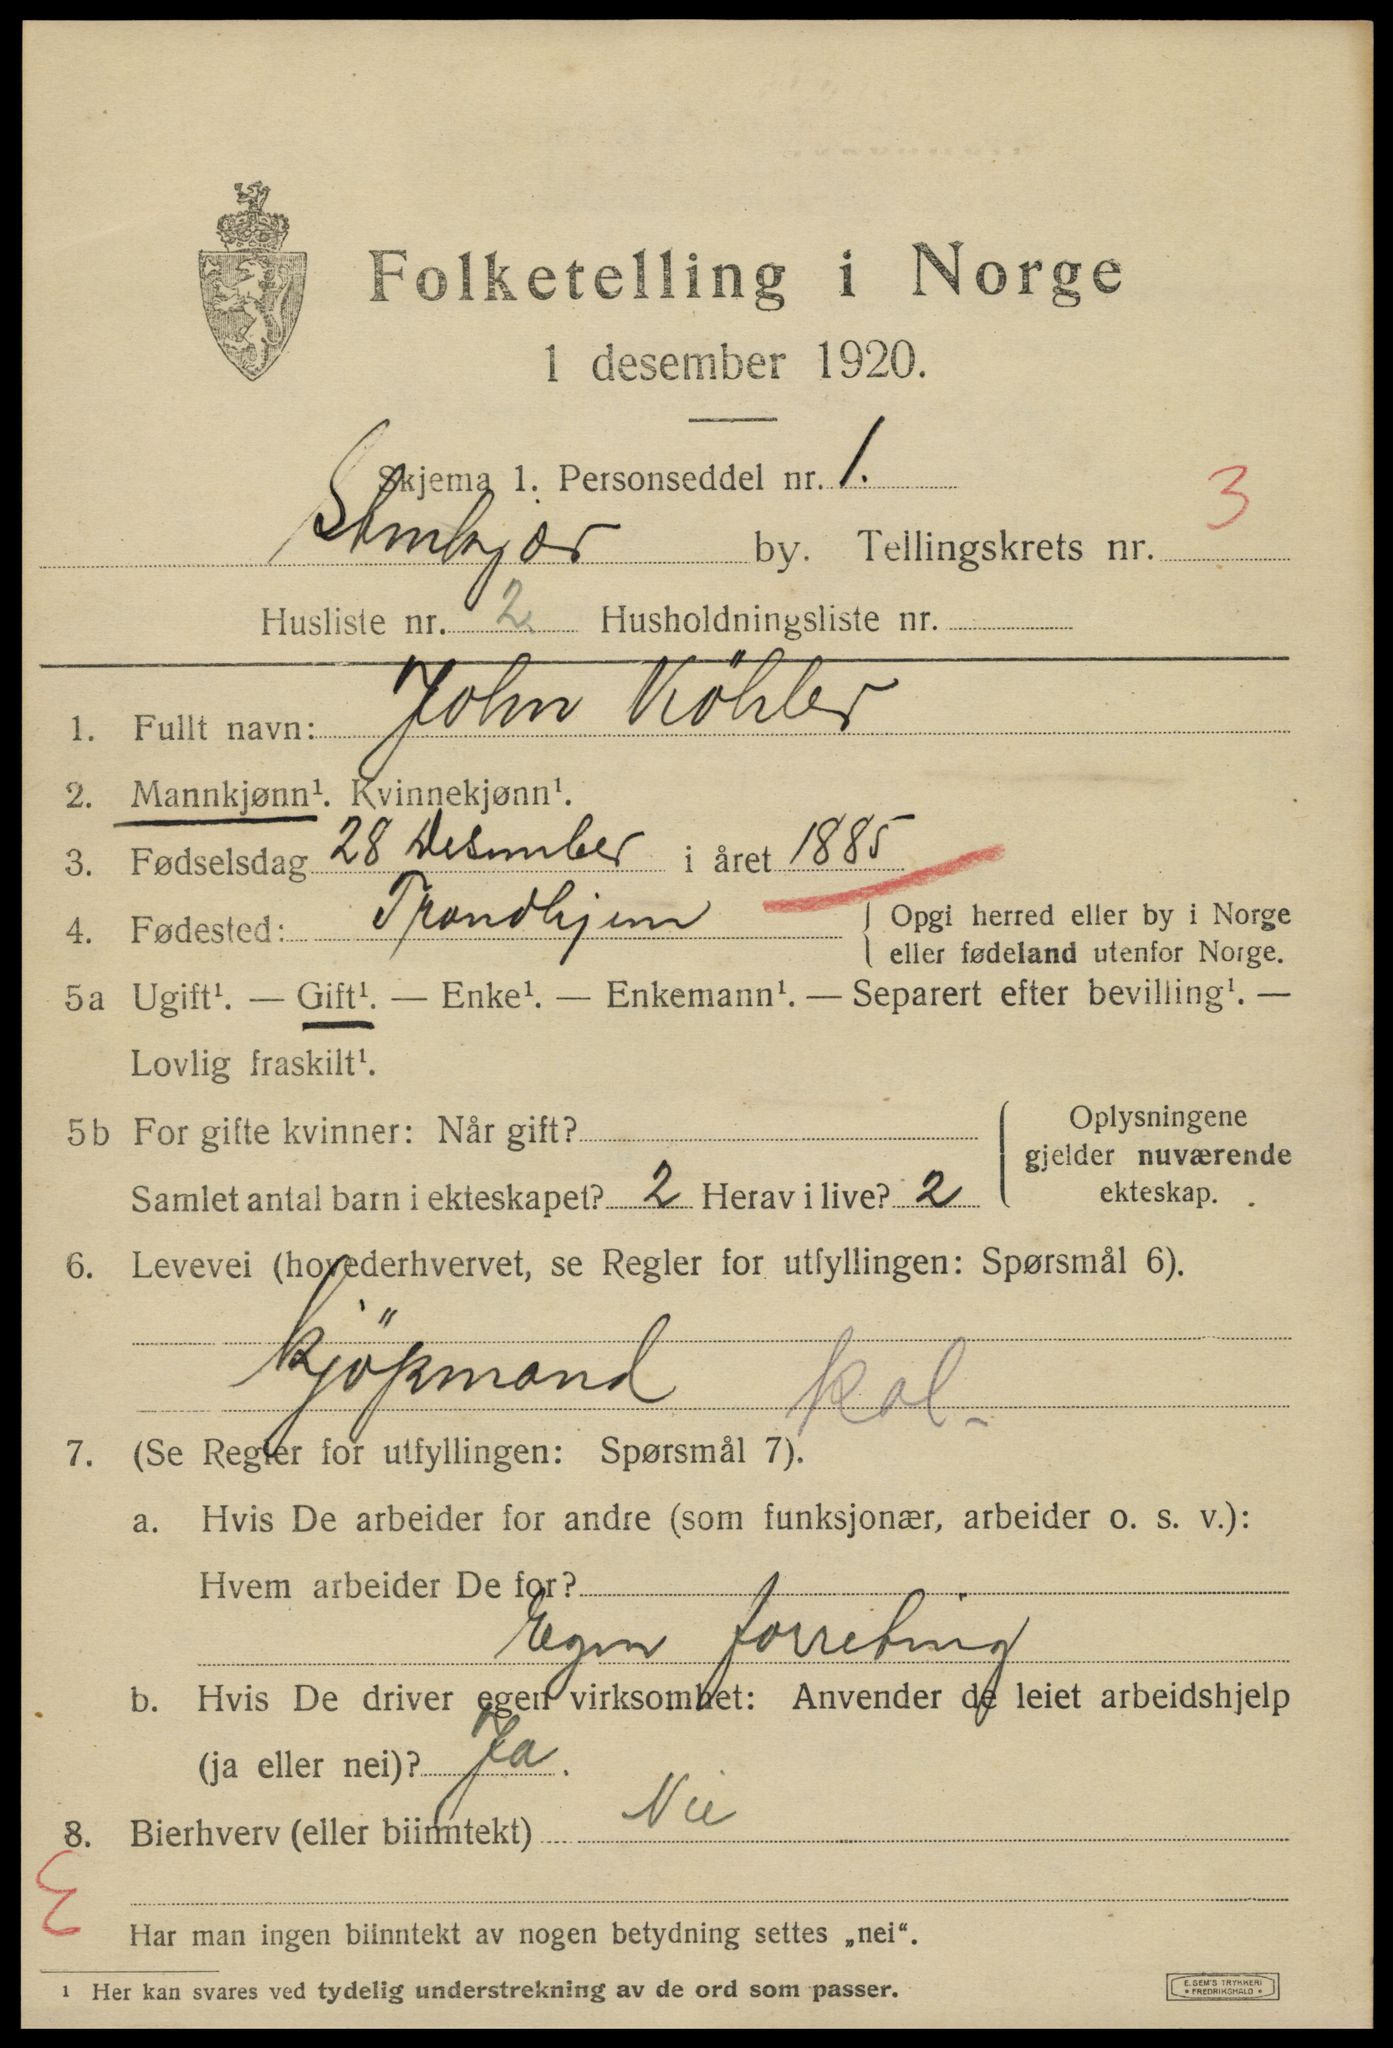 Folketelling i Norge
1 desember 1920.
Skjema 1. Personseddel nr. 1.
Stenkjær by. Tellingskrets nr. 3
Husliste nr. 2 Husholdningsliste nr.
1. Fullt navn: John Köhler
2. Mannkjønn¹. Kvinnekjønn¹.
3. Fødselsdag 28 Desember i året 1885
4. Fødested: Trondhjem
Opgi herred eller by i Norge
eller fødeland utenfor Norge.
5a Ugift¹. — Gift¹. — Enke¹. — Enkemann¹. — Separert efter bevilling¹. —
Lovlig fraskilt¹.
5b For gifte kvinner: Når gift?
Samlet antal barn i ekteskapet? 2 Herav i live? 2
Oplysningene
gjelder nuværende
ekteskap.
6. Levevei (hovederhvervet, se Regler for utfyllingen: Spørsmål 6).
Kjöpmand kol-
7. (Se Regler for utfyllingen: Spørsmål 7).
a. Hvis De arbeider for andre (som funksjonær, arbeider o. s. v.):
Hvem arbeider De for?
Egen forretning
b. Hvis De driver egen virksomhet: Anvender de leiet arbeidshjelp
(ja eller nei)? Ja.
8. Bierhverv (eller biinntekt) Nei
Har man ingen biinntekt av nogen betydning settes „nei“.
¹ Her kan svares ved tydelig understrekning av de ord som passer.
E. SEM'S TRYKKERI
FREDRIKSHALD